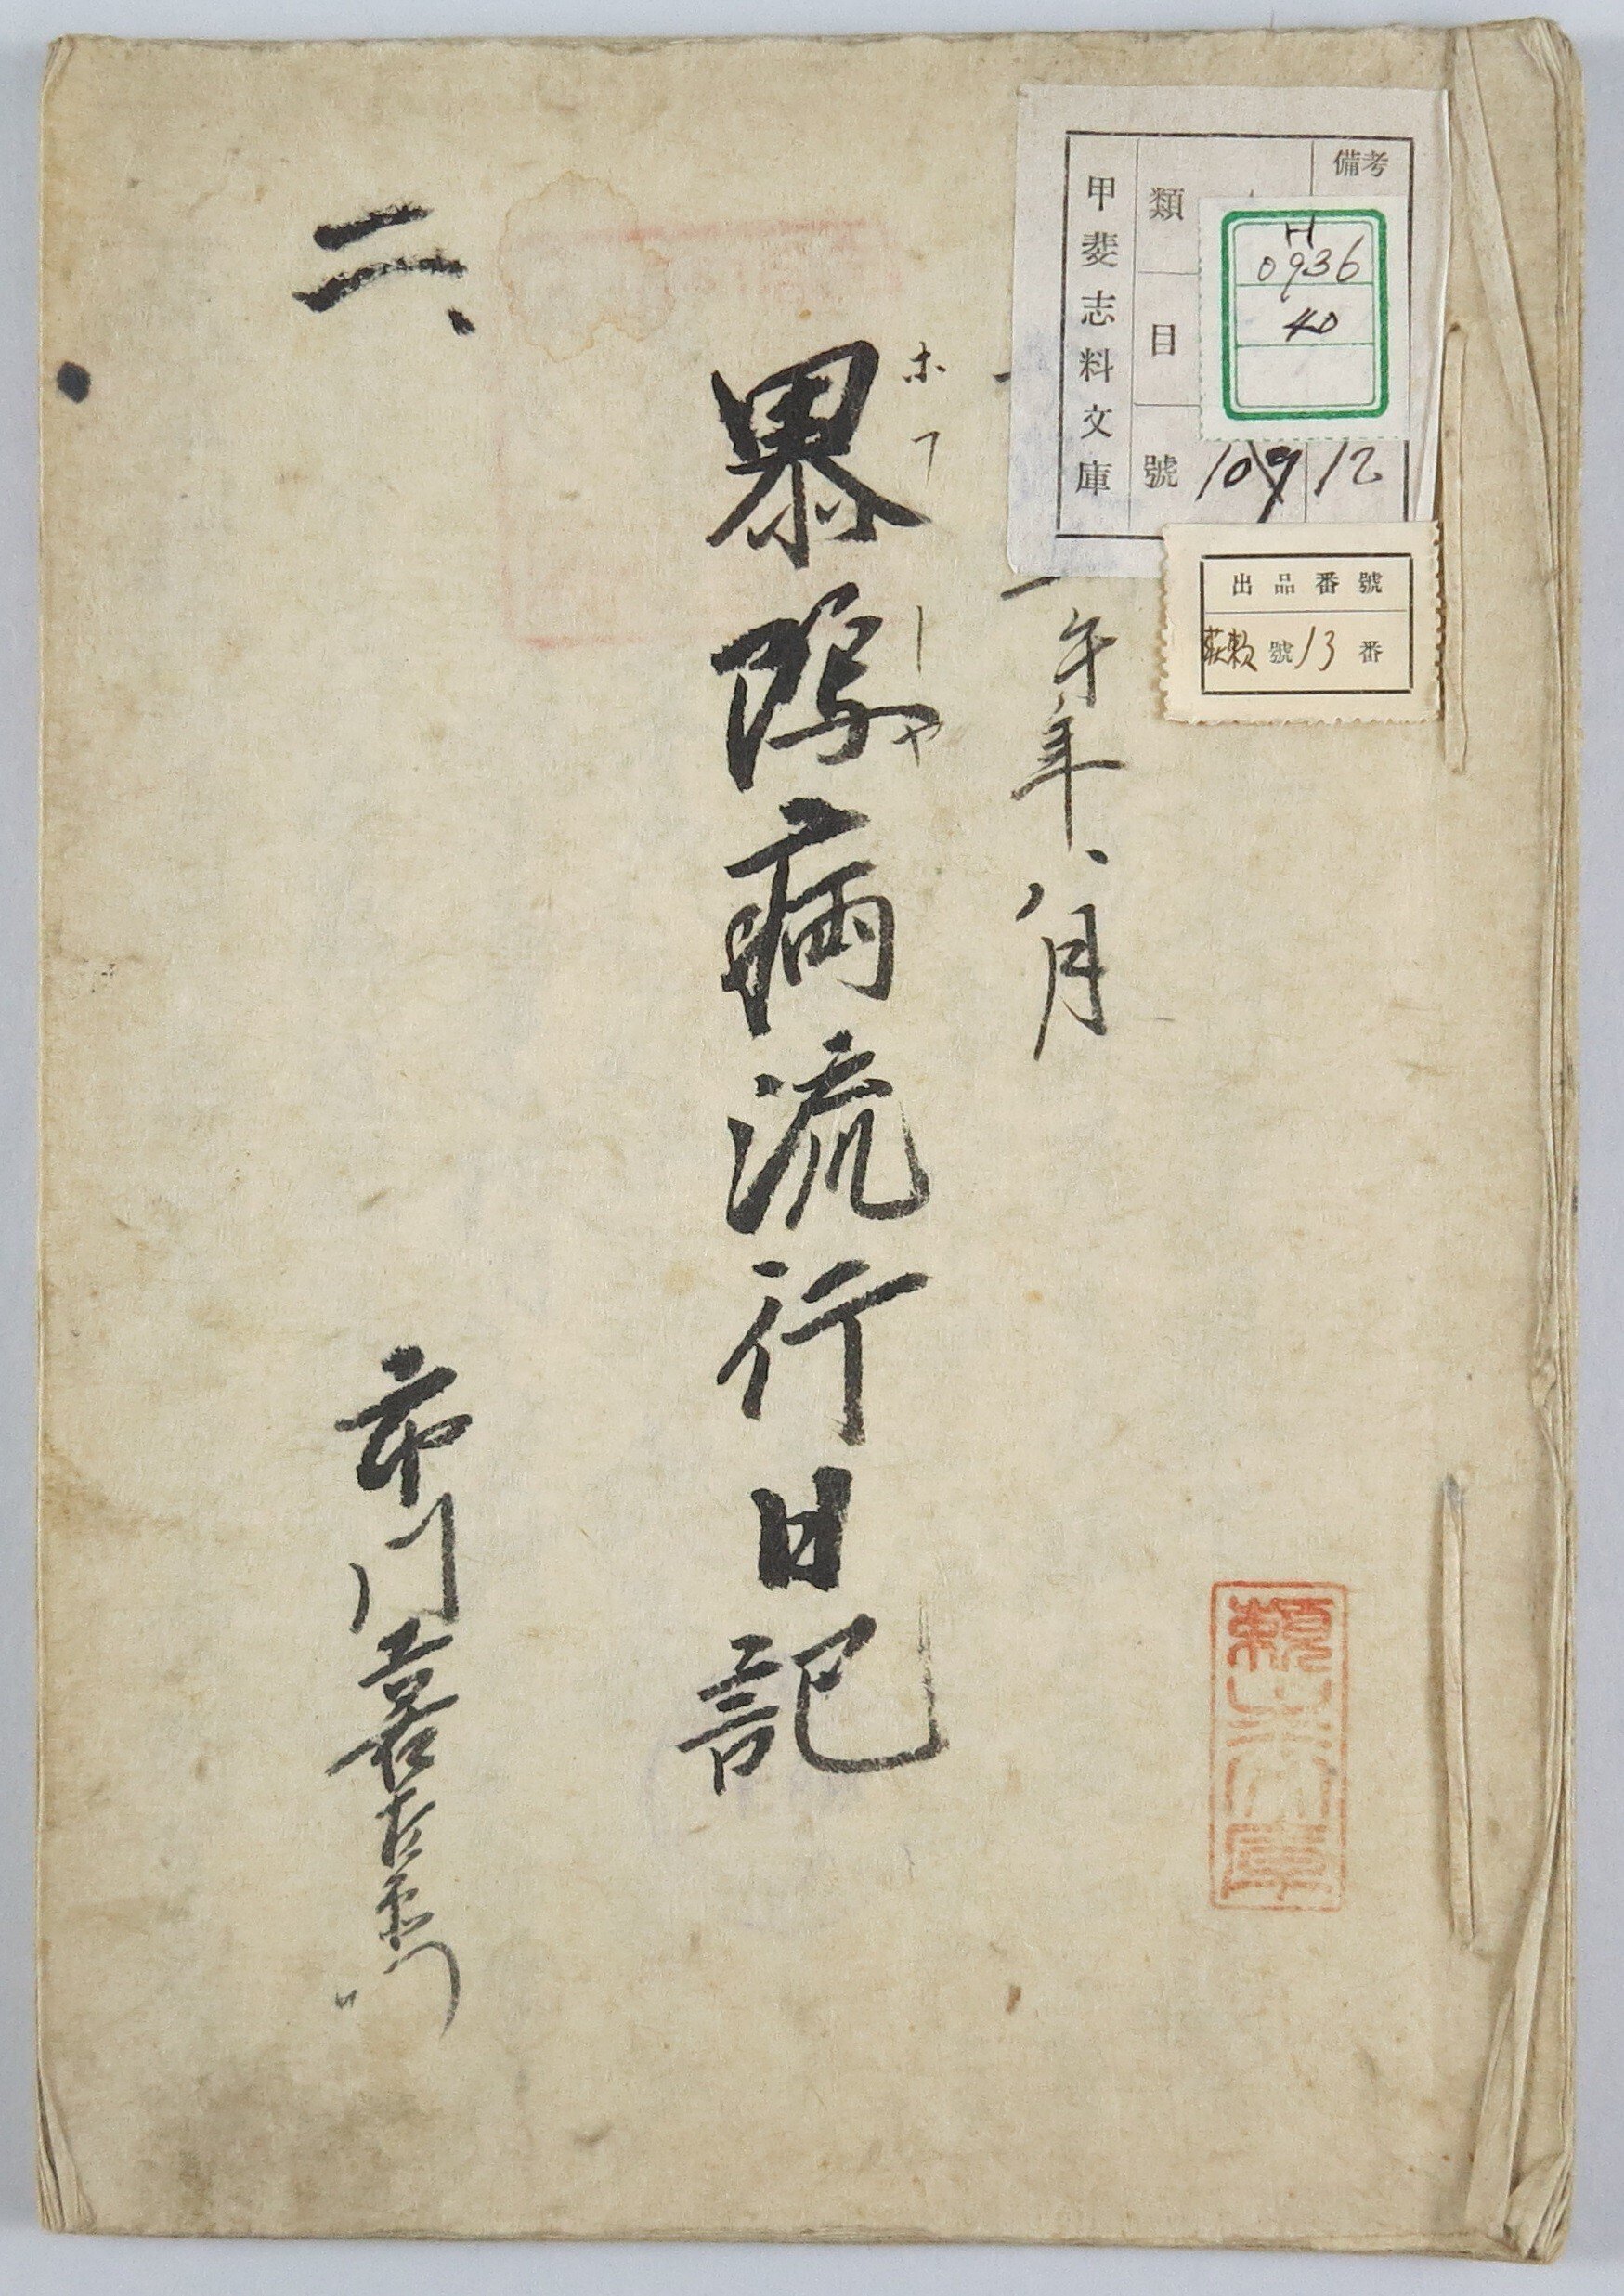 備考
類
目
號 109 12
甲斐志料文庫
H
0936
40
出品番號
號 13 番
午年
八月
暴瀉病流行日記
ホフ
シヤ
市川喜左衛門
頼生文庫